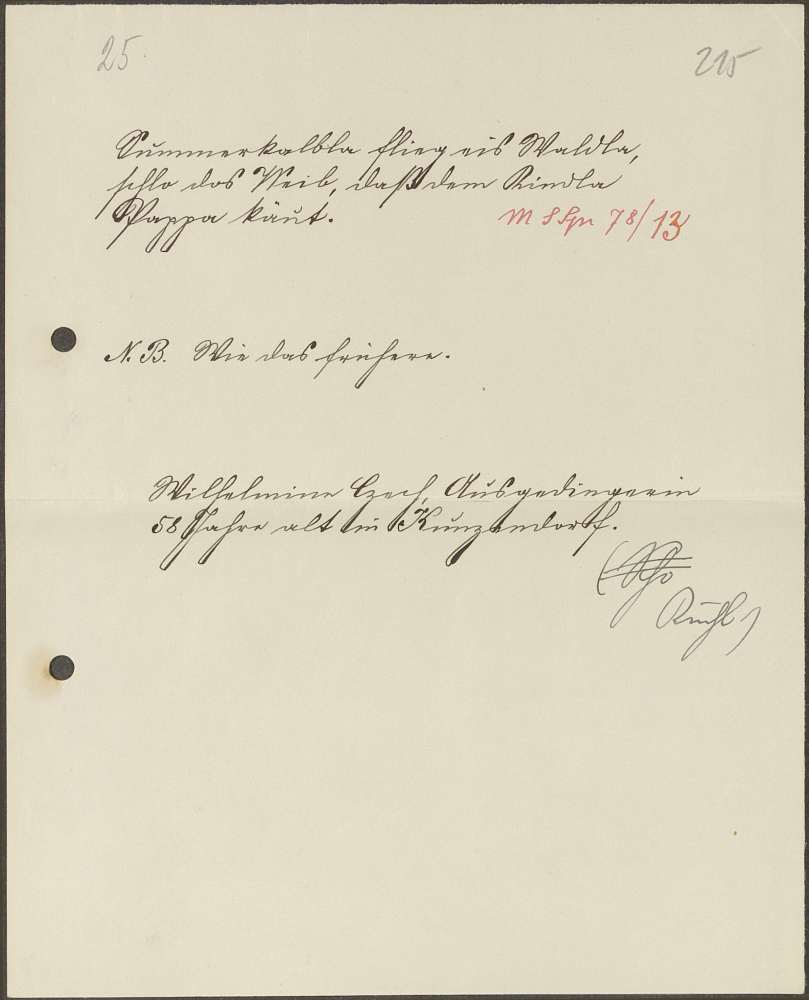 25.
215
Summerkalbla flieg eis Waldla,
schlo dos Weib, daß dem Kindla
Pappa käut.
M S Spr 78/13
N. B. Wie das frühere.
Wilhelmine Czech, Ausgedingerin
58 Jahre alt in Kunzendorf.